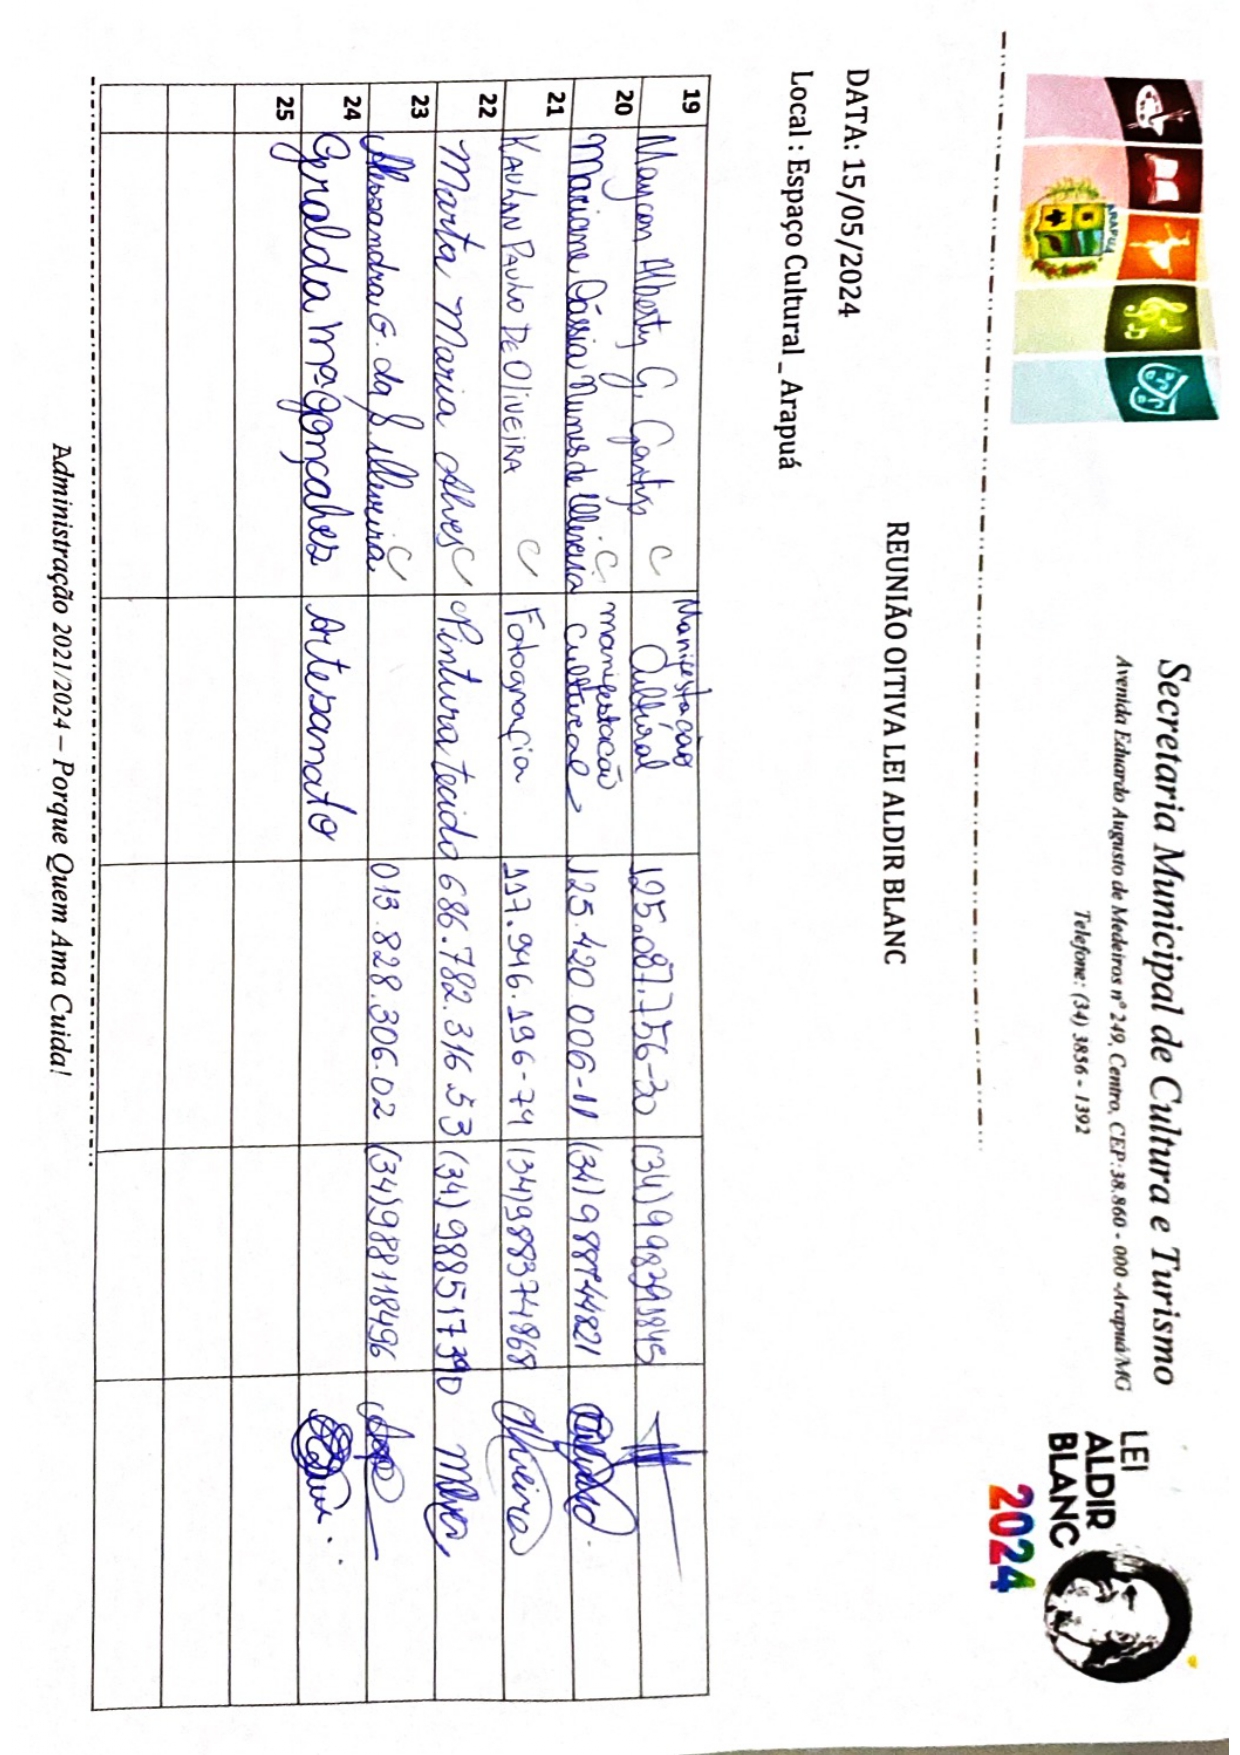 Secretaria Municipal de Cultura e Turismo
Avenida Eduardo Augusto de Medeiros nº 249, Centro, CEP:38.860 - 000 -Arapuá/MG
Telefone: (34) 3856 - 1392
ARAPUÁ
LEI
ALDIR
BLANC
2024
REUNIÃO OITIVA LEI ALDIR BLANC
DATA: 15/05/2024
Local : Espaço Cultural _ Arapuá
19 Maycon Alberty G. C Manifestação Cultural 125.087.756-30 (34)998391845
20 Mariane Cássia Nunes de Oliveira C manifestacão Cultural 125.420.006-11 (34)988744821
21 KAUHAN PAULO DE OLIVEIRA C Fotografia 117.946.196-74 (34)988374868 Oliveira
22 Marta Maria Alves C Pintura tecido 686.782.316.53 (34)988517390 MAlves
23 Alessandra G. da S. Oliveira C 013.828.306.02 (34)988118496
24 Geralda Mª Gonçalves Artesanato
25
Administração 2021/2024 – Porque Quem Ama Cuida!